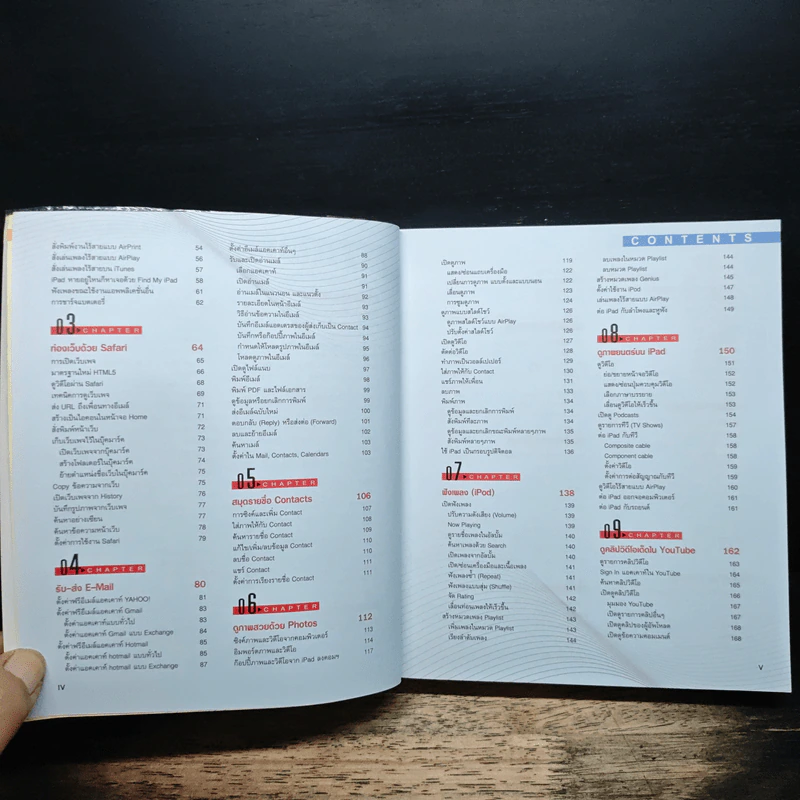 สั่งพิมพ์งานไร้สายแบบ AirPrint 54
สั่งเล่นเพลงไร้สายแบบ AirPlay 55
สั่งเล่นเพลงไร้สายบน iTunes 57
iPad หายอยู่ไหนก็หาเจอด้วย Find My iPad 58
ฟังเพลงขณะใช้งานแอพพลิเคชั่นอื่น 61
การชาร์จแบตเตอรี่ 62
03 CHAPTER
ท่องเว็บด้วย Safari 64
การเปิดเว็บเพจ 65
มาตรฐานใหม่ HTML5 66
ดูวิดีโอผ่าน Safari 68
เทคนิคการดูเว็บเพจ 68
ส่ง URL ถึงเพื่อนทางอีเมล์ 69
สร้างเป็นไอคอนในหน้าจอ Home 70
สั่งพิมพ์หน้าเว็บ 71
เก็บเว็บเพจไว้ในบุ๊คมาร์ค 71
เปิดเว็บเพจจากบุ๊คมาร์ค 73
สร้างโฟลเดอร์ในบุ๊คมาร์ค 74
ย้ายตำแหน่งชื่อเว็บในบุ๊คมาร์ค 74
Copy ข้อความจากเว็บ 75
เปิดเว็บเพจจาก History 76
บันทึกรูปภาพจากเว็บเพจ 77
ค้นหาอย่างเซียน 77
ค้นหาข้อความหน้าเว็บ 78
ตั้งค่าการใช้งาน Safari 79
04 CHAPTER
รับ-ส่ง E-Mail 80
ตั้งค่าฟรีอีเมล์แอคเคาท์ YAHOO! 81
ตั้งค่าฟรีอีเมล์แอคเคาท์ Gmail 83
ตั้งค่าแอคเคาท์แบบทั่วไป 83
ตั้งค่าแอคเคาท์ Gmail แบบ Exchange 84
ตั้งค่าฟรีอีเมล์แอคเคาท์ Hotmail 85
ตั้งค่าแอคเคาท์ hotmail แบบทั่วไป 85
ตั้งค่าแอคเคาท์ hotmail แบบ Exchange 87
IV
ตั้งค่าอีเมล์แอคเคาท์อื่นๆ 88
รับและเปิดอ่านเมล์ 90
เลือกแอคเคาท์ 91
เปิดอ่านเมล์ 91
อ่านเมล์ในแนวนอน และแนวตั้ง 92
รายละเอียดในหน้าอีเมล์ 93
วิธีอ่านข้อความในอีเมล์ 93
บันทึกอีเมล์แอดเดรสของผู้ส่งเก็บเป็น Contact 94
บันทึกหรือก๊อปปี้ภาพในอีเมล์ 94
กำหนดให้โหลดรูปภาพในอีเมล์ 95
โหลดดูภาพในอีเมล์ 96
เปิดดูไฟล์แนบ 97
พิมพ์อีเมล์ 98
พิมพ์ PDF และไฟล์เอกสาร 99
ดูข้อมูลหรือยกเลิกการพิมพ์ 99
ส่งอีเมล์ฉบับใหม่ 100
ตอบกลับ (Reply) หรือส่งต่อ (Forward) 101
ลบและย้ายอีเมล์ 102
ค้นหาเมล์ 103
ตั้งค่าใน Mail, Contacts, Calendars 103
05 CHAPTER
สมุดรายชื่อ Contacts 106
การซิงค์และเพิ่ม Contact 107
ใส่ภาพให้กับ Contact 108
ค้นหารายชื่อ Contact 109
แก้ไข/เพิ่ม/ลบข้อมูล Contact 110
ลบชื่อ Contact 111
แชร์ Contact 111
ตั้งค่าการเรียงรายชื่อ Contact 111
06 CHAPTER
ดูภาพสวยด้วย Photos 112
ซิงค์ภาพและวิดีโอจากคอมพิวเตอร์ 113
อิมพอร์ตภาพและวิดีโอ 114
ก๊อปปี้ภาพและวิดีโอจาก iPad ลงคอมฯ 117
CONTENTS
เปิดดูภาพ 119
แสดง/ซ่อนแถบเครื่องมือ 122
เปลี่ยนการดูภาพ แบบตั้งและแบบนอน 122
เลื่อนดูภาพ 123
การซูมดูภาพ 124
ดูภาพแบบสไลด์โชว์ 125
ดูภาพสไลด์โชว์แบบ AirPlay 126
ปรับตั้งค่าสไลด์โชว์ 126
เปิดดูวิดีโอ 127
ตัดต่อวิดีโอ 128
ทำภาพเป็นวอลล์เปเปอร์ 129
ใส่ภาพให้กับ Contact 130
แชร์ภาพให้เพื่อน 131
ลบภาพ 133
พิมพ์ภาพ 134
ดูข้อมูลและยกเลิกการพิมพ์ 134
สั่งพิมพ์ทีละภาพ 134
ดูข้อมูลและยกเลิกขณะพิมพ์หลายๆภาพ 135
สั่งพิมพ์หลายๆภาพ 135
ใช้ iPad เป็นกรอบรูปดิจิตอล 136
07 CHAPTER
ฟังเพลง (iPod) 138
เปิดฟังเพลง 139
ปรับความดังเสียง (Volume) 139
Now Playing 139
ดูรายชื่อเพลงในอัลบั้ม 140
ค้นหาเพลงด้วย Search 140
เปิดเพลงจากอัลบั้ม 140
เปิด/ซ่อนเครื่องมือและเนื้อเพลง 141
ฟังเพลงซ้ำ (Repeat) 141
ฟังเพลงแบบสุ่ม (Shuffle) 141
จัด Rating 142
เลื่อนท่อนเพลงให้เร็วขึ้น 142
สร้างหมวดเพลง Playlist 143
เพิ่มเพลงในหมวด Playlist 144
เรียงลำดับเพลง 144
ลบเพลงในหมวด Playlist 144
ลบหมวด Playlist 144
สร้างหมวดเพลง Genius 145
ตั้งค่าใช้งาน iPod 146
เล่นเพลงไร้สายแบบ AirPlay 147
ต่อ iPad กับลำโพงและหูฟัง 149
08 CHAPTER
ดูภาพยนตร์บน iPad 150
ดูวิดีโอ 151
ย่อ/ขยายหน้าจอวิดีโอ 152
แสดง/ซ่อนปุ่มควบคุมวิดีโอ 152
เลือกภาษาบรรยาย 153
เลื่อนดูวิดีโอให้เร็วขึ้น 153
เปิดดู Podcasts 154
ดูรายการทีวี (TV Shows) 155
ต่อ iPad กับทีวี 158
Composite cable 158
Component cable 158
ตั้งค่าวิดีโอ 159
ตั้งค่าการต่อสัญญาณกับทีวี 159
ดูวิดีโอไร้สายแบบ AirPlay 160
ต่อ iPad ออกจอคอมพิวเตอร์ 161
ต่อ iPad กับรถยนต์ 161
09 CHAPTER
ดูคลิปวิดีโอเด็ดใน YouTube 162
ดูรายการวิดีโอ 163
Sign in แอคเคาท์ใน YouTube 164
ค้นหาคลิปวิดีโอ 165
เปิดดูคลิปวิดีโอ 165
มุมมอง YouTube 166
เปิดดูรายการคลิปอื่นๆ 167
เปิดคลิปของผู้อัพโหลด 168
เปิดดูข้อความคอมเมนต์ 168
V